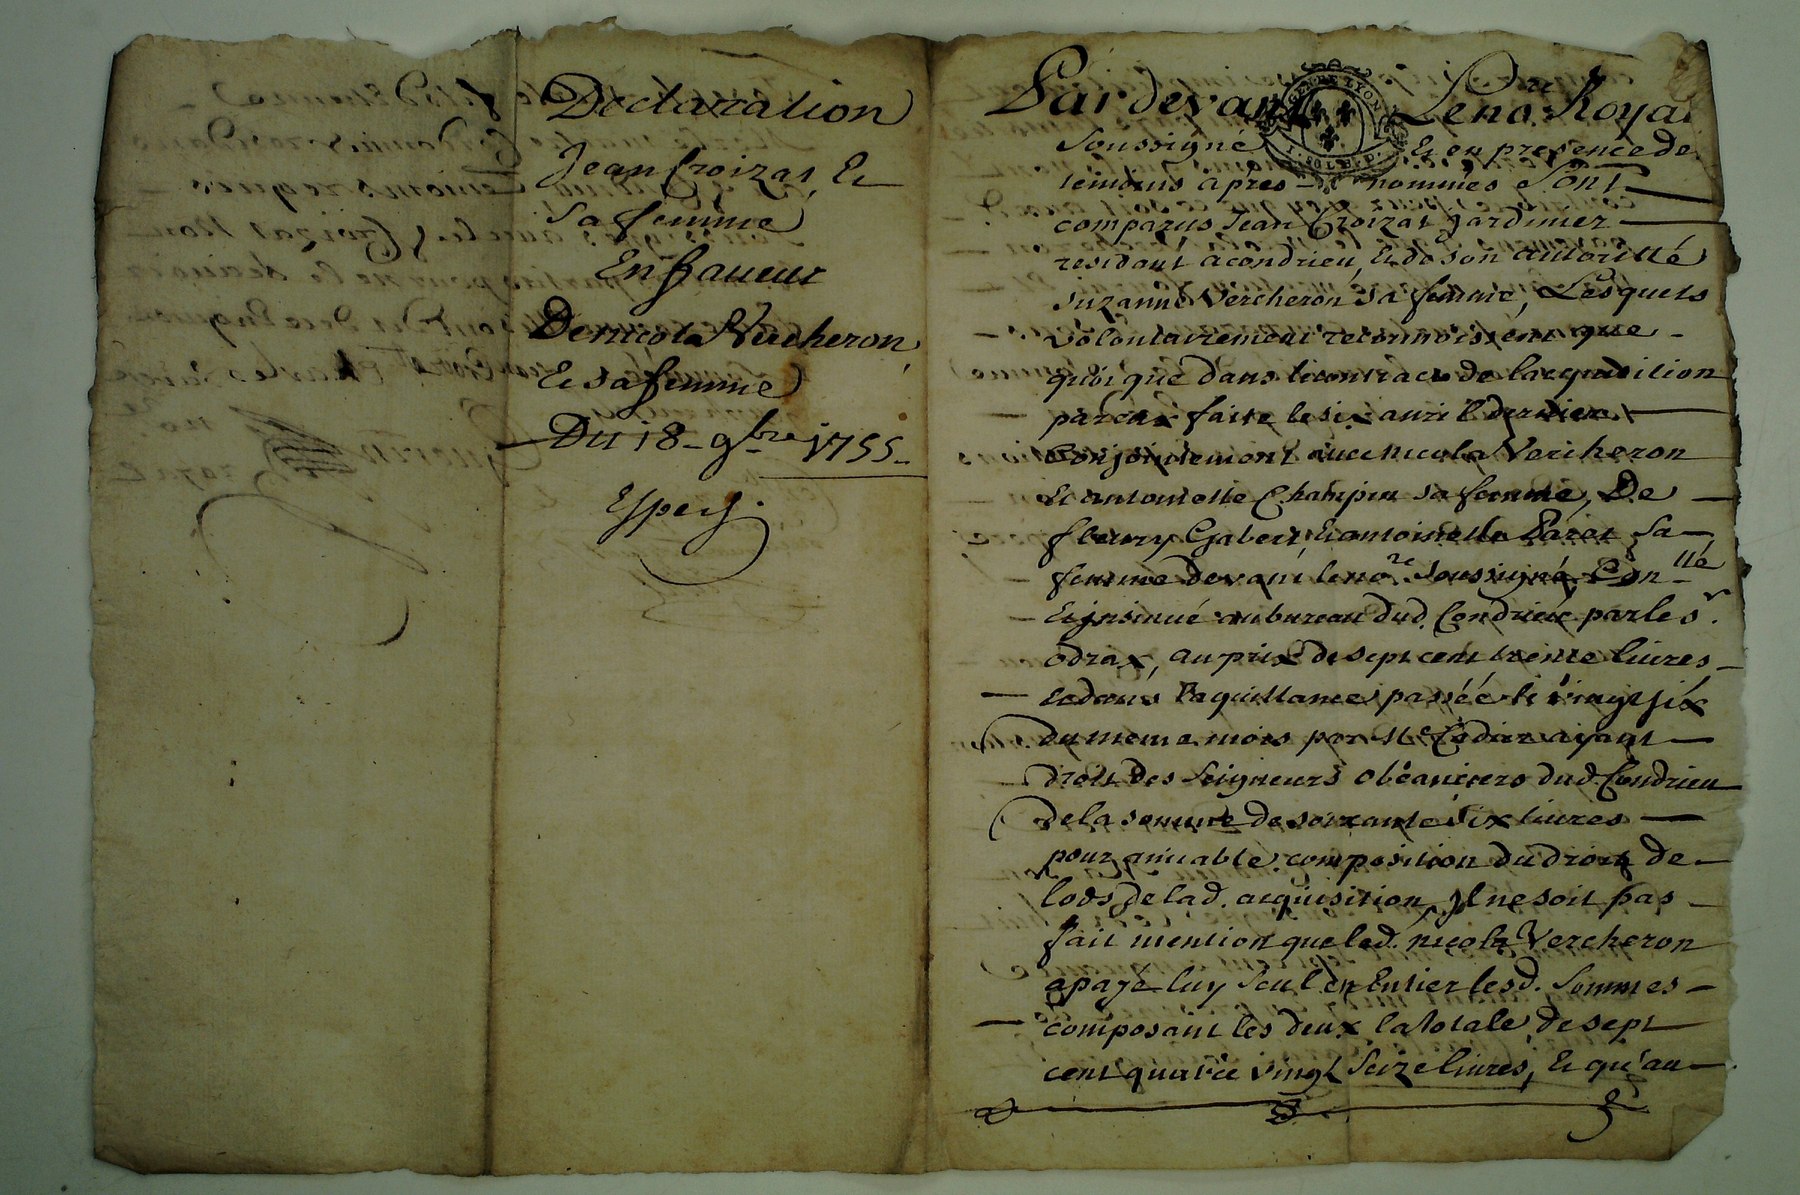 Declaration
Jean Croizat Et
Sa femme
En faueur
De nicola Vercheron
Et sa femme
Du 18 9bre 1755
Par devant Le no.re Royal
Soussigné Et en presence de
temoins apres nommés Sont
comparus Jean Croizat Jardinier
residant a condrieu, Et de son autorité
Suzanne Vercheron sa femme, Lesquels
volontairement reconnoissent que
quoi que dans le contract de lacquisition
par eux faite le six auril dernier
Conjointement auec nicola Vercheron
Et antoinette Champin sa femme, De
fleury Gabert, Et antoinette Paret Sa
femme devant le no.re Soussigné Con.llé
Et jnsinué au bureau dud. Condrieu par le s.r
odrax, au prix de sept cent trente liures
Et dans la quittance passée le vingt six
du meme mois par ayant
droit des Seigneurs obéanciers dud. Condrieu
De la somme de soixante Six liures
pour amiable composition du droit de
lods de lad. acquisition, Jl ne soit pas
fait mention que led. nicola Vercheron
a payé luy Seul en Entier lesd. Sommes
composant les deux la totale de sept
cent quatre vingt Seize liures, Et qu'au